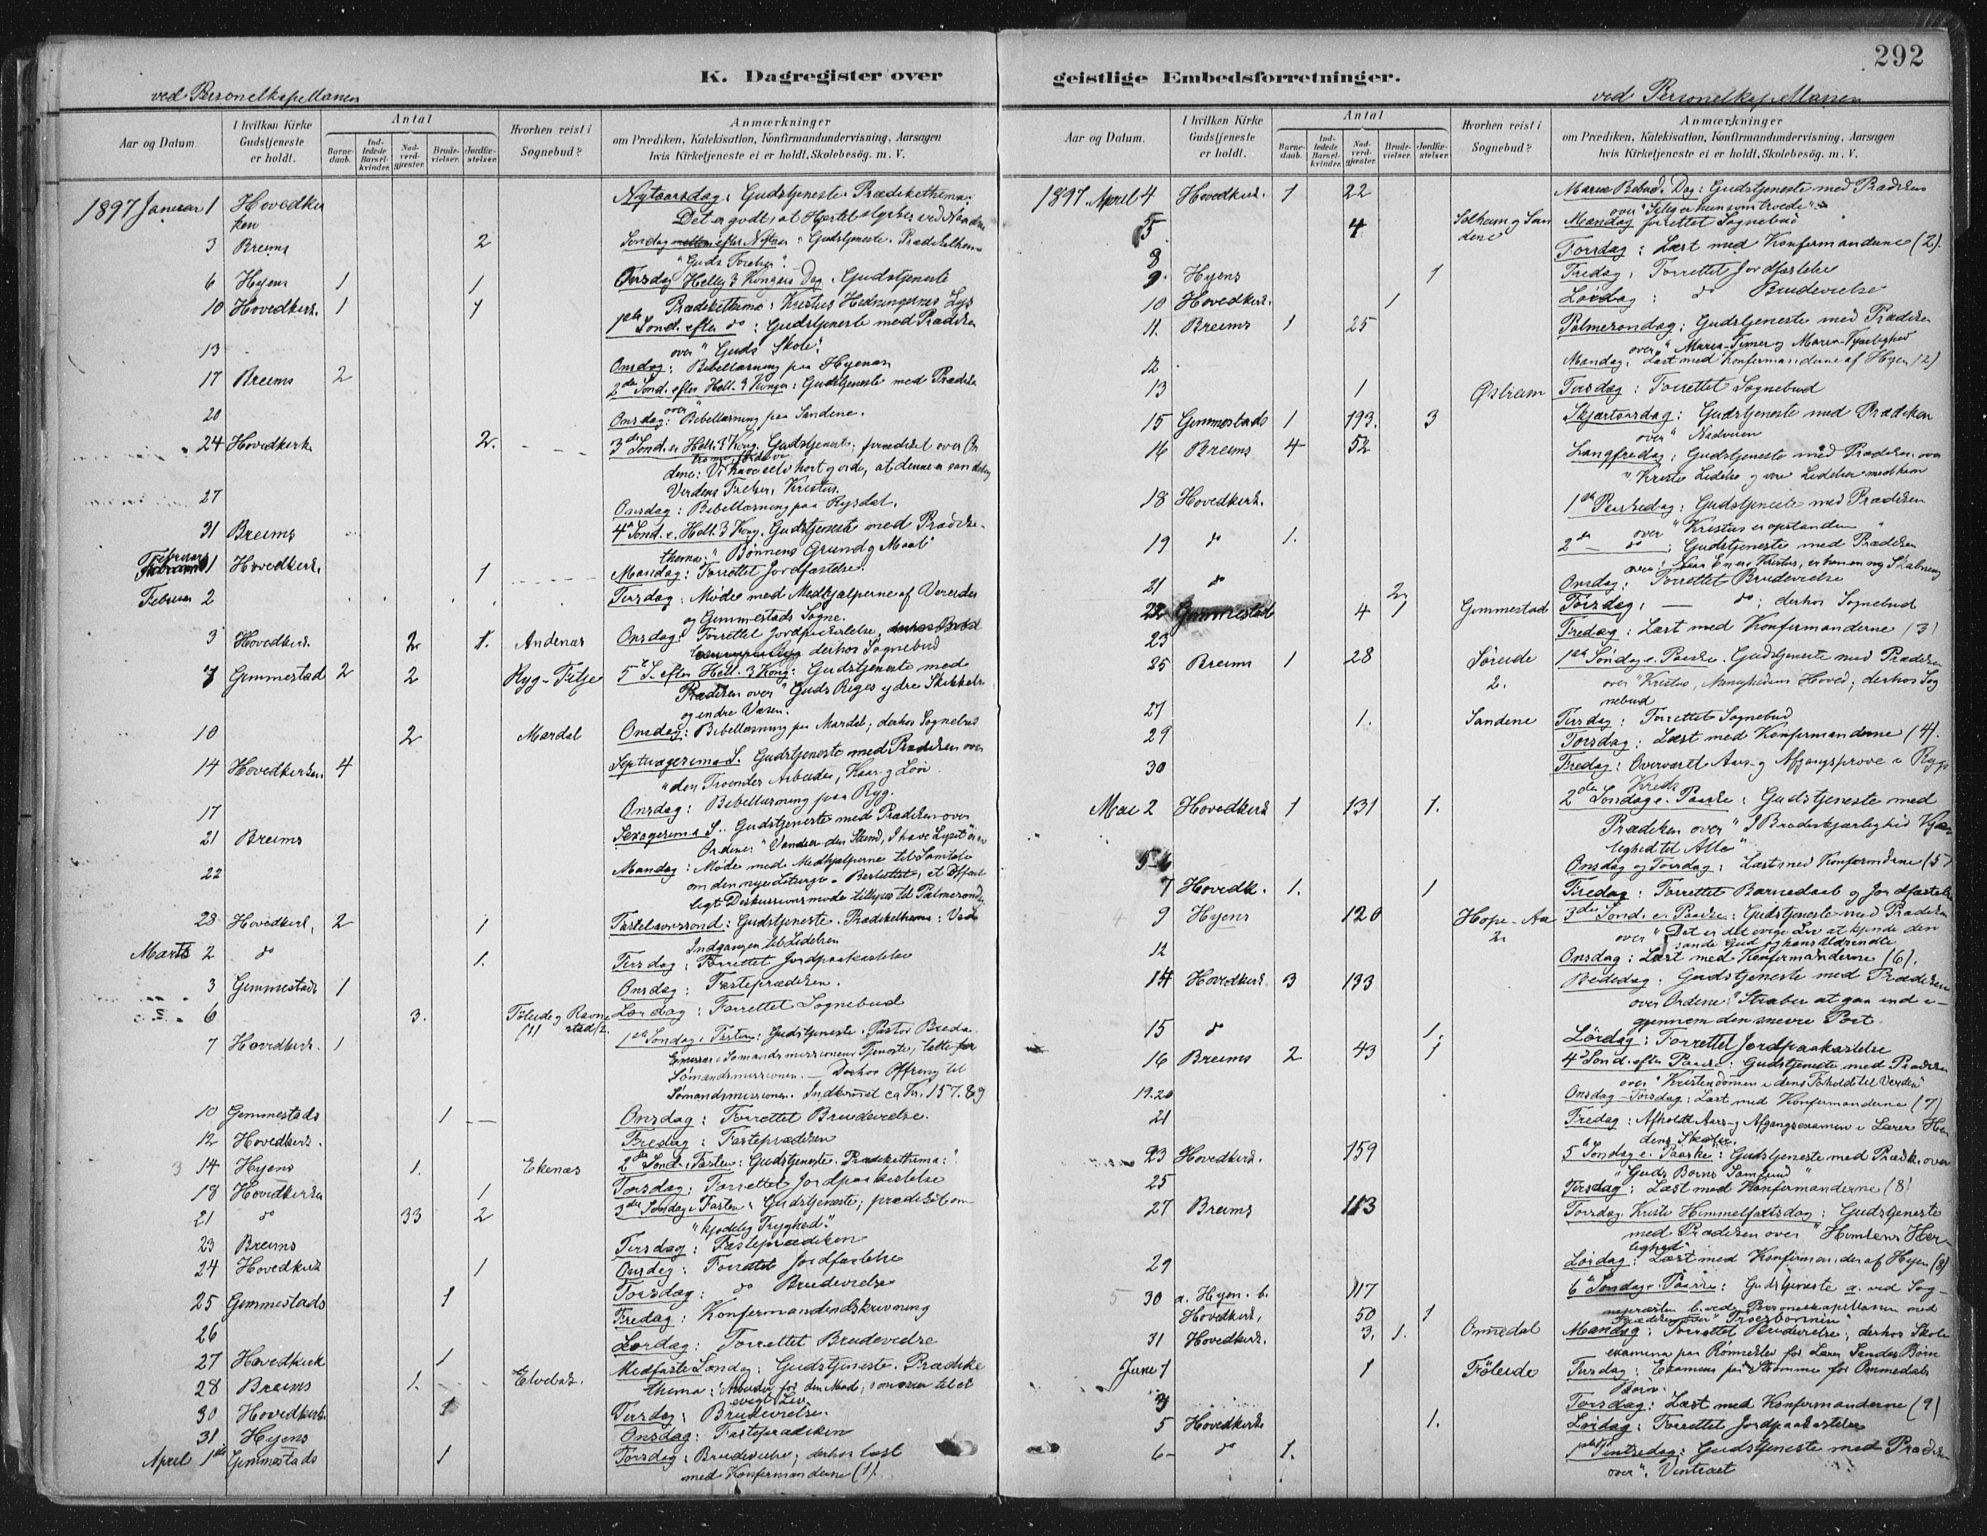 292
K. Dagregister over
geistlige Embedsforretninger.
ved Personelkapellanen
ved Personelkapellanen
Aar og Datum.
I hvilken Kirke Gudstjeneste er holdt.
Antal
Barne-daab.
Ind-ledede Barsel-kvinder.
Nad-verd-gjester.
Brude-vielser.
Jordfæ-stelser.
Hvorhen reist i Sognebud?
Anmærkninger
om Prædiken, Katekisation, Konfirmandundervisning, Aarsagen
hvis Kirketjeneste ei er holdt, Skolebesøg. m. V.
1897 Januar 1 Hovedkirken Nytaarsdag: Gudstjeneste. Prædikethema:
Det er godt, at Hjertet styrkes ved Naaden
3 Breims 2 Søndag efter Nytaar: Gudstjeneste. Prædikethema
"Guds Frelse".
6 Hyens 1 1 Onsdag Hellig 3 Kongers Dag. Gudstjeneste
Prædikethema: Kristus Hedningernes Lys
10 Hovedkirk. 1 1 1ste Sønd. efter do: Gudstjeneste med Prædiken
over "Guds Skole".
13 Onsdag: Bibellæsning paa Hyenan
17 Breims 2 2den Sønd. efter Hell. 3 Konger: Gudstjeneste med Prædiken
over "
20 Onsdag: Bibellæsning paa Sandene.
24 Hovedkirk 2. 3die Sønd. e. Hell. 3 Kong. Gudstjeneste; prædiket over Or
dene: Vi have selv hørt og vide, at denne er sandelig
Verdens Frelser, Kristus.
27 Onsdag: Bibellæsning paa Rygsdal.
31 Breims 4de Sønd. e. Hell. 3 Kong. Gudstjeneste med Prædike-
thema: "Bønnens Grund og Maal"
Februar 1 Hovedkirk. 1 Mandag: Forrettet Jordfæstelse.
Februar 2 Tirsdag: Møde med Medhjælperne af Vereides
og Gimmestads Sogne.
3 Hovedkirk. 2 1. Andenæs Onsdag: Forrettet Jordfæstelse,
derhos Sognebud
7 Gimmestad 2 2 Ryg-Titje 5te S. efter Hell. 3 Kong: Gudstjeneste med
Prædiken over "Guds Riges ydre Skikkelse
og indre Væsen."
10 2 Mardal Onsdag: Bibellæsning paa Mardal; derhos Sognebud
14 Hovedkirken 4 Septuagesima S. Gudstjeneste med Prædiken over
"den Troendes Arbeide, Kaar og Løn.
17 Onsdag: Bibellæsning paa Ryg.
21 Breims Sexagesima S.: Gudstjeneste med Prædiken over
Ordene: "Vandrer den Stund, I have Lyset"
22 Mandag: Møde med Medhjælperne til Samtale
om den nye Liturgi. Besluttet, at Offent
ligt Diskussionsmøde tillyses til Palmesøndag
28 Hovedkirk. 2 1 Fastelavnssønd: Gudstjeneste. Prædikethema: Ved
Indgangen til Lidelsen
Marts 2 do 1. Tirsdag: Forrettet Jordpaakastelse
3 Gimmestads 1 Onsdag: Fasteprædiken.
6 3. Føleide og Ravne
stad Lørdag: Forrettet Sognebud
7 Hovedkirk. 1 1ste Søndag i Fasten: Gudstjeneste. Pastor Breda.
Emissær i Sømandsmissionens Tjeneste, talte for
Sømandsmissionen. — Derhos Offring til
Sømandsmissionen. Indkomst ca Kr. 157.89
10 Gimmestads 1 Onsdag: Forrettet Brudevielse.
12 Hovedkirk. Fredag: Fasteprædiken
14 Hyens 1. Ekenæs 2den Sønd. i Fasten: Gudstjeneste. Prædikethema:
18 Hovedkirken 1 Torsdag: Forrettet Jordpaakastelse
21 do 33 2 3die Søndag i Fasten: Gudstjeneste; prædiket om
"kjødelig Tryghed."
23 Breims Tirsdag: Fasteprædiken
24 Hovedkirk 1 Onsdag: Forrettet Jordfæstelse
25 Gimmestads 1 Torsdag: do Brudevielse
26 Fredag: Konfirmandindskrivning
27 Hovedkirk 1 Lørdag: Forrettet Brudevielse
28 Breims 1. Elvebak. Midfaste Søndag: Gudstjeneste. Prædike
thema: Arbeider for den Mad, som varer til et
evigt Liv.
30 Hovedkirk. 1 Tirsdag: Brudevielse.
31 Hyens Onsdag: Fasteprædiken
April 1ste Gimmestads 1 Torsdag: Brudevielse; derhos læst
med Konfirmanderne (1).
Aar og Datum.
I hvilken Kirke Gudstjeneste er holdt.
Antal
Barne-daab.
Ind-ledede Barsel-kvinder.
Nad-verd-gjester.
Brude-vielser.
Jordfæ-stelser.
Hvorhen reist i Sognebud?
Anmærkninger
om Prædiken, Katekisation, Konfirmandundervisning, Aarsagen
hvis Kirketjeneste ei er holdt, Skolebesøg. m. V.
1897. April 4 Hovedkirk. 1 22 Mariæ Bebud. Dag: Gudstjeneste med Prædiken
over "Salig er hun som troede".
5 4 Solheim og San
dene Mandag forrettet Sognebud
8 Torsdag: Læst med Konfirmanderne (2).
9. Hyens 1 Fredag: Forrettet Jordfæstelse
10 Hovedkirk. 1 Lørdag: do Brudevielse
11. Breims 1 25 Palmesøndag: Gudstjeneste med Prædiken
over "Maria-Timer og Maria-Kjærlighed
12 Mandag: Læst med Konfirmandene af Hyen (2)
13 1 Østreim Tirsdag: Forrettet Sognebud
15 Gimmestads 1 193. 3 Skjærtorsdag: Gudstjeneste med Prædiken
over "Nadveren
16 Breims 4 52 Langfredag: Gudstjeneste med Prædiken over
"Kristi Lidelse og vore Lidelser med ham
18 Hovedkirk. 1ste Paaskedag: Gudstjeneste med Prædiken
over "Kristus er opstanden"
19 do 1. 2den — do: Gudstjeneste med Prædiken
over: Naar En er i Kristus, er han en ny Skabning
21 do 2 Onsdag: Forrettet Brudevielse
22 Gimmestad 4 1 Gimmestad Torsdag: — do; derhos Sognebud
23 Fredag: Læst med Konfirmanderne (3)
25 Breims 1 28 Søreide
2. 1ste Søndag e. Paaske. Gudstjeneste med Prædiken
over "Kristus, Menighedens Hoved; derhos Sog
nebud
27 1. Sandene Tirsdag: Forrettet Sognebud
29 Torsdag: Læst med Konfirmanderne (4).
30 Fredag: Overværet Aars- og Afgangsprøve i Rygs
Kreds
Mai 2 Hovedkirk 1 131 1. 2den Søndag e. Paaske: Gudstjeneste med
Prædiken over "I Broderkjærlighed Kjær
lighed til Alle".
5-6 Onsdag og Torsdag: Læst med Konfirmderne (5)
7 Hovedk. 1. 1 Fredag: Forrettet Barnedaab og Jordfæstelse
9 Hyens 120 Hope-Aa
2 3die Sønd. e. Paaske: Gudstjeneste med Prædiken
over "Det er det evige Liv at kjende den
sande Gud og hans Udsendte
12 Onsdag: Læst med Konfirmanderne (6).
14 Hovedkirk. 3 133 Bededag: Gudstjeneste med Prædiken
over Ordene: Stræber at gaa ind i-
gjennem den snevre Port.
15 do 1. Lørdag: Forrettet Jordpaakastelse
16 Breims 2 43 1 4de Sønd. efter Paaske: Gudstjeneste med Prædiken
over "Kristendomen i dens Forhold til Verden"
19.20 Onsdag-Torsdag: Læst med Konfirmanderne (7)
21 Fredag: Afholdt Aars- og Afgangsexamen i Lærer
Skole.
23 Hovedkirk. 159 5te Søndag e. Paaske: Gudstjeneste med Prædik. over
"Guds Børns Samfund"
25 Tirsdag: Læst med Konfirmanderne (8)
27 Breims 113 Torsdag. Kristi Himmelfartsdag: Gudstjeneste
med Prædiken over "Himlens Her-
lighed".
29 Lørdag: Læst med Konfirmander af Hyen (8)
30 a. Hyen. b. 117 6te Søndag e. Paaske: Gudstjeneste a. ved Sog-
Hovedkirk. 50 1 nepræsten b. ved Personelkapellanen med
Prædiken over "Troesbønnen"
31 Hovedkirk. 3. 1. Ommedal Mandag: Forrettet Brudevielse; derhos Skole
examen paa Rønnekleiv for Lærer Sandes Børn
Juni 1 1 Føleide Tirsdag: Examen paa Stømme for Ommedals
Børn.
3 Torsdag: Læst med Konfirmanderne (9)
5 Hovedkirk 1. Lørdag: Forrettet Jordpaakastelse
6 - do 1. 1ste Pintsedag: Gudstjeneste med Prædiken
over